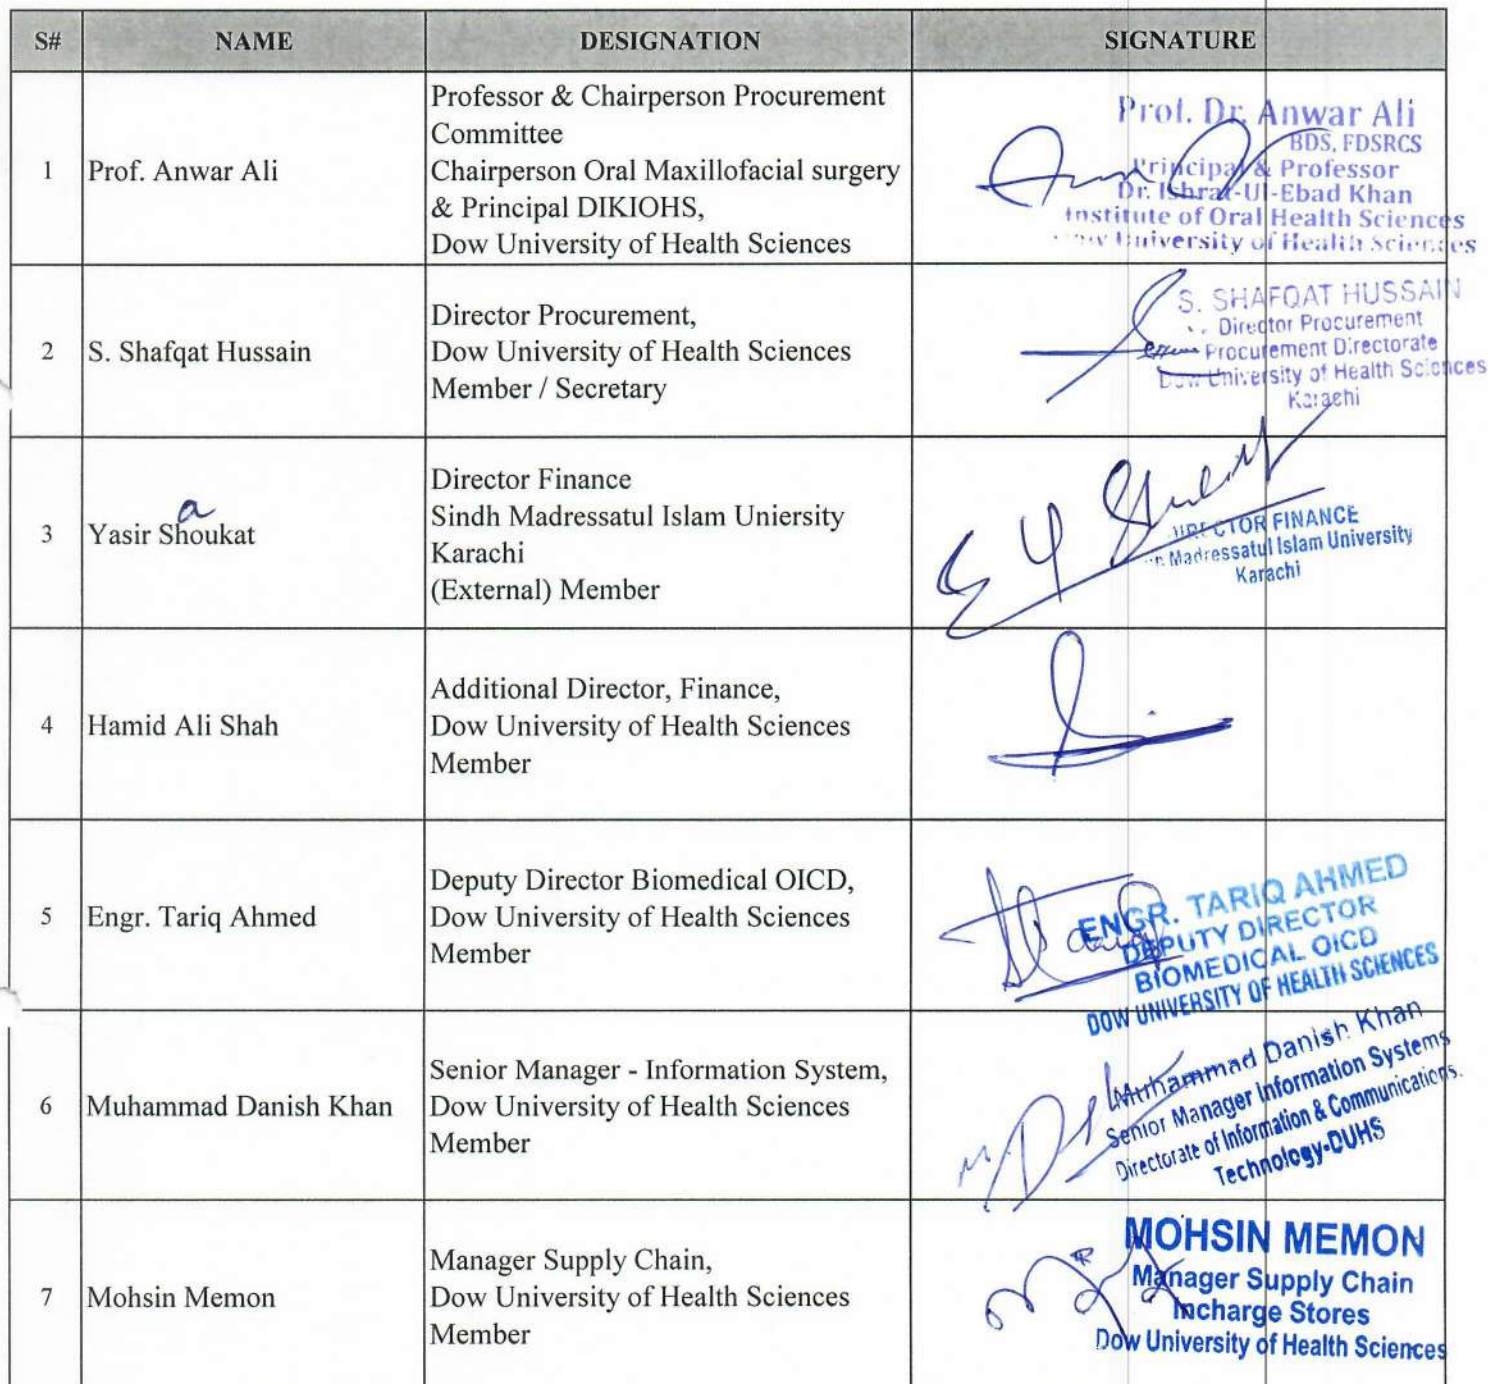 S# NAME DESIGNATION SIGNATURE
1 Prof. Anwar Ali
Professor & Chairperson Procurement
Committee
Chairperson Oral Maxillofacial surgery
& Principal DIKIOHS,
Dow University of Health Sciences
Prof. Dr. Anwar Ali
BDS, FDSRCS
Principal & Professor
Dr. Ishrat-Ul-Ebad Khan
Institute of Oral Health Sciences
Dow University of Health Sciences
2 S. Shafqat Hussain
Director Procurement,
Dow University of Health Sciences
Member / Secretary
S. SHAFQAT HUSSAIN
Director Procurement
Procurement Directorate
Dow University of Health Sciences
Karachi
3 Yasir Shoukat
a
Director Finance
Sindh Madressatul Islam Uniersity
Karachi
(External) Member
DIRECTOR FINANCE
Madressatul Islam University
Karachi
4 Hamid Ali Shah
Additional Director, Finance,
Dow University of Health Sciences
Member
5 Engr. Tariq Ahmed
Deputy Director Biomedical OICD,
Dow University of Health Sciences
Member
ENGR. TARIQ AHMED
DEPUTY DIRECTOR
BIOMEDICAL OICD
DOW UNIVERSITY OF HEALTH SCIENCES
6 Muhammad Danish Khan
Senior Manager - Information System,
Dow University of Health Sciences
Member
Muhammad Danish Khan
Senior Manager Information Systems
Directorate of Information & Communications.
Technology-DUHS
7 Mohsin Memon
Manager Supply Chain,
Dow University of Health Sciences
Member
MOHSIN MEMON
Manager Supply Chain
Incharge Stores
Dow University of Health Sciences